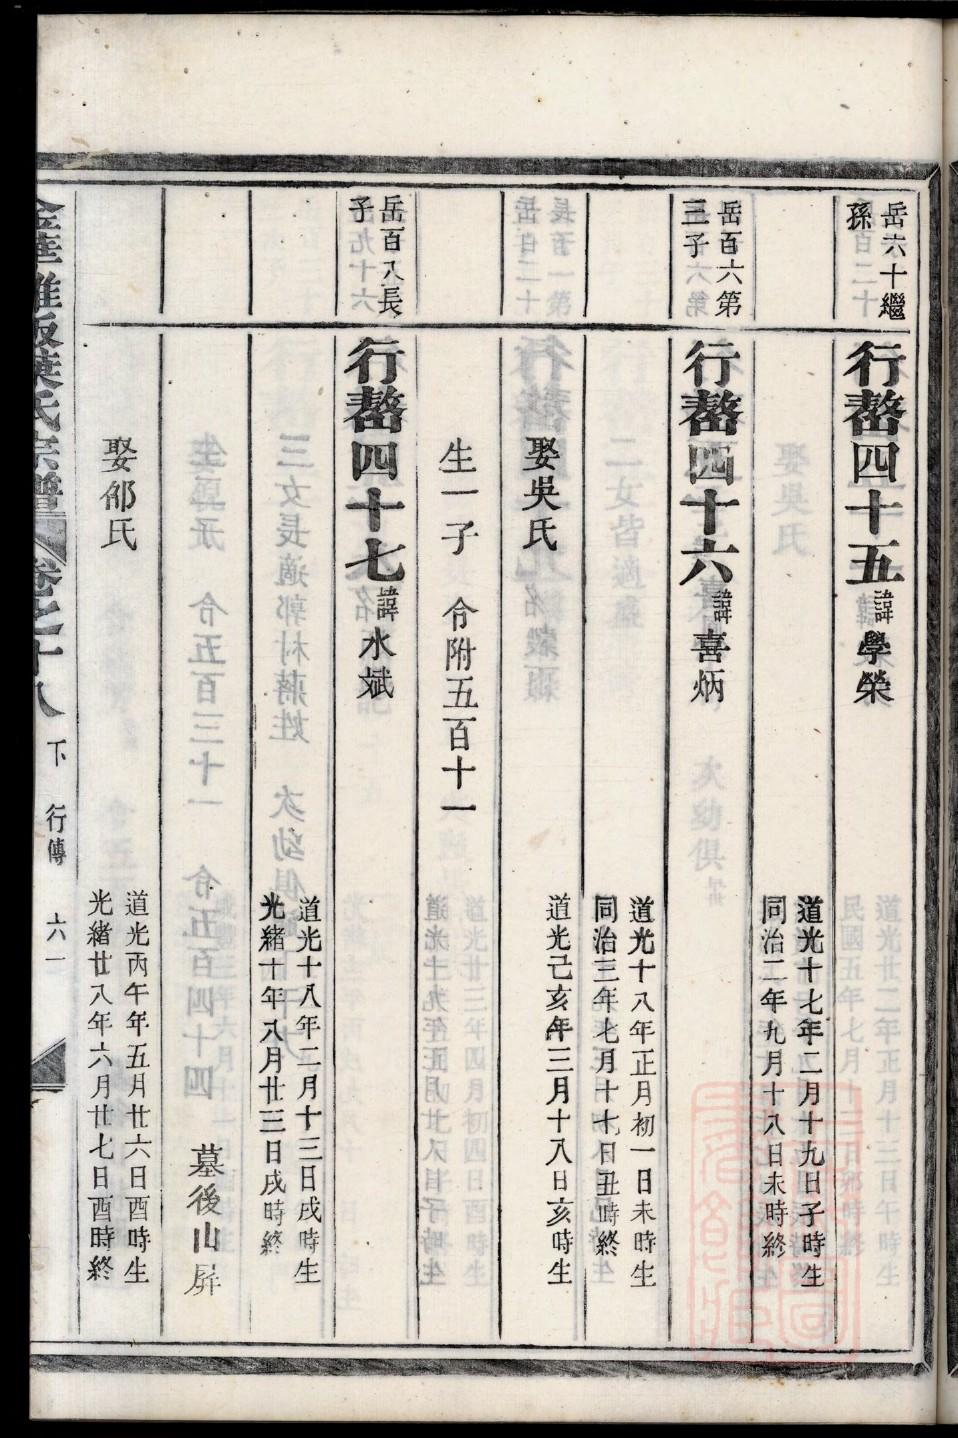 岳六十繼
孫
行嶅四十五諱學榮
道光十七年二月十九日子時生
同治二年九月十八日未時終
岳百六第
三子
行嶅四十六諱喜炳
道光十八年正月初一日未時生
同治三年七月十七日丑時終
娶吳氏
道光己亥年三月十八日亥時生
生一子 令附五百十一
岳百八長
子
行嶅四十七諱水斌
道光十八年二月十三日戌時生
光緒十年八月廿三日戌時終
墓後山屏
娶邰氏
道光丙午年五月廿六日酉時生
光緒廿八年六月廿七日酉時終
葉氏宗譜 卷之十八 下 行傳 六一